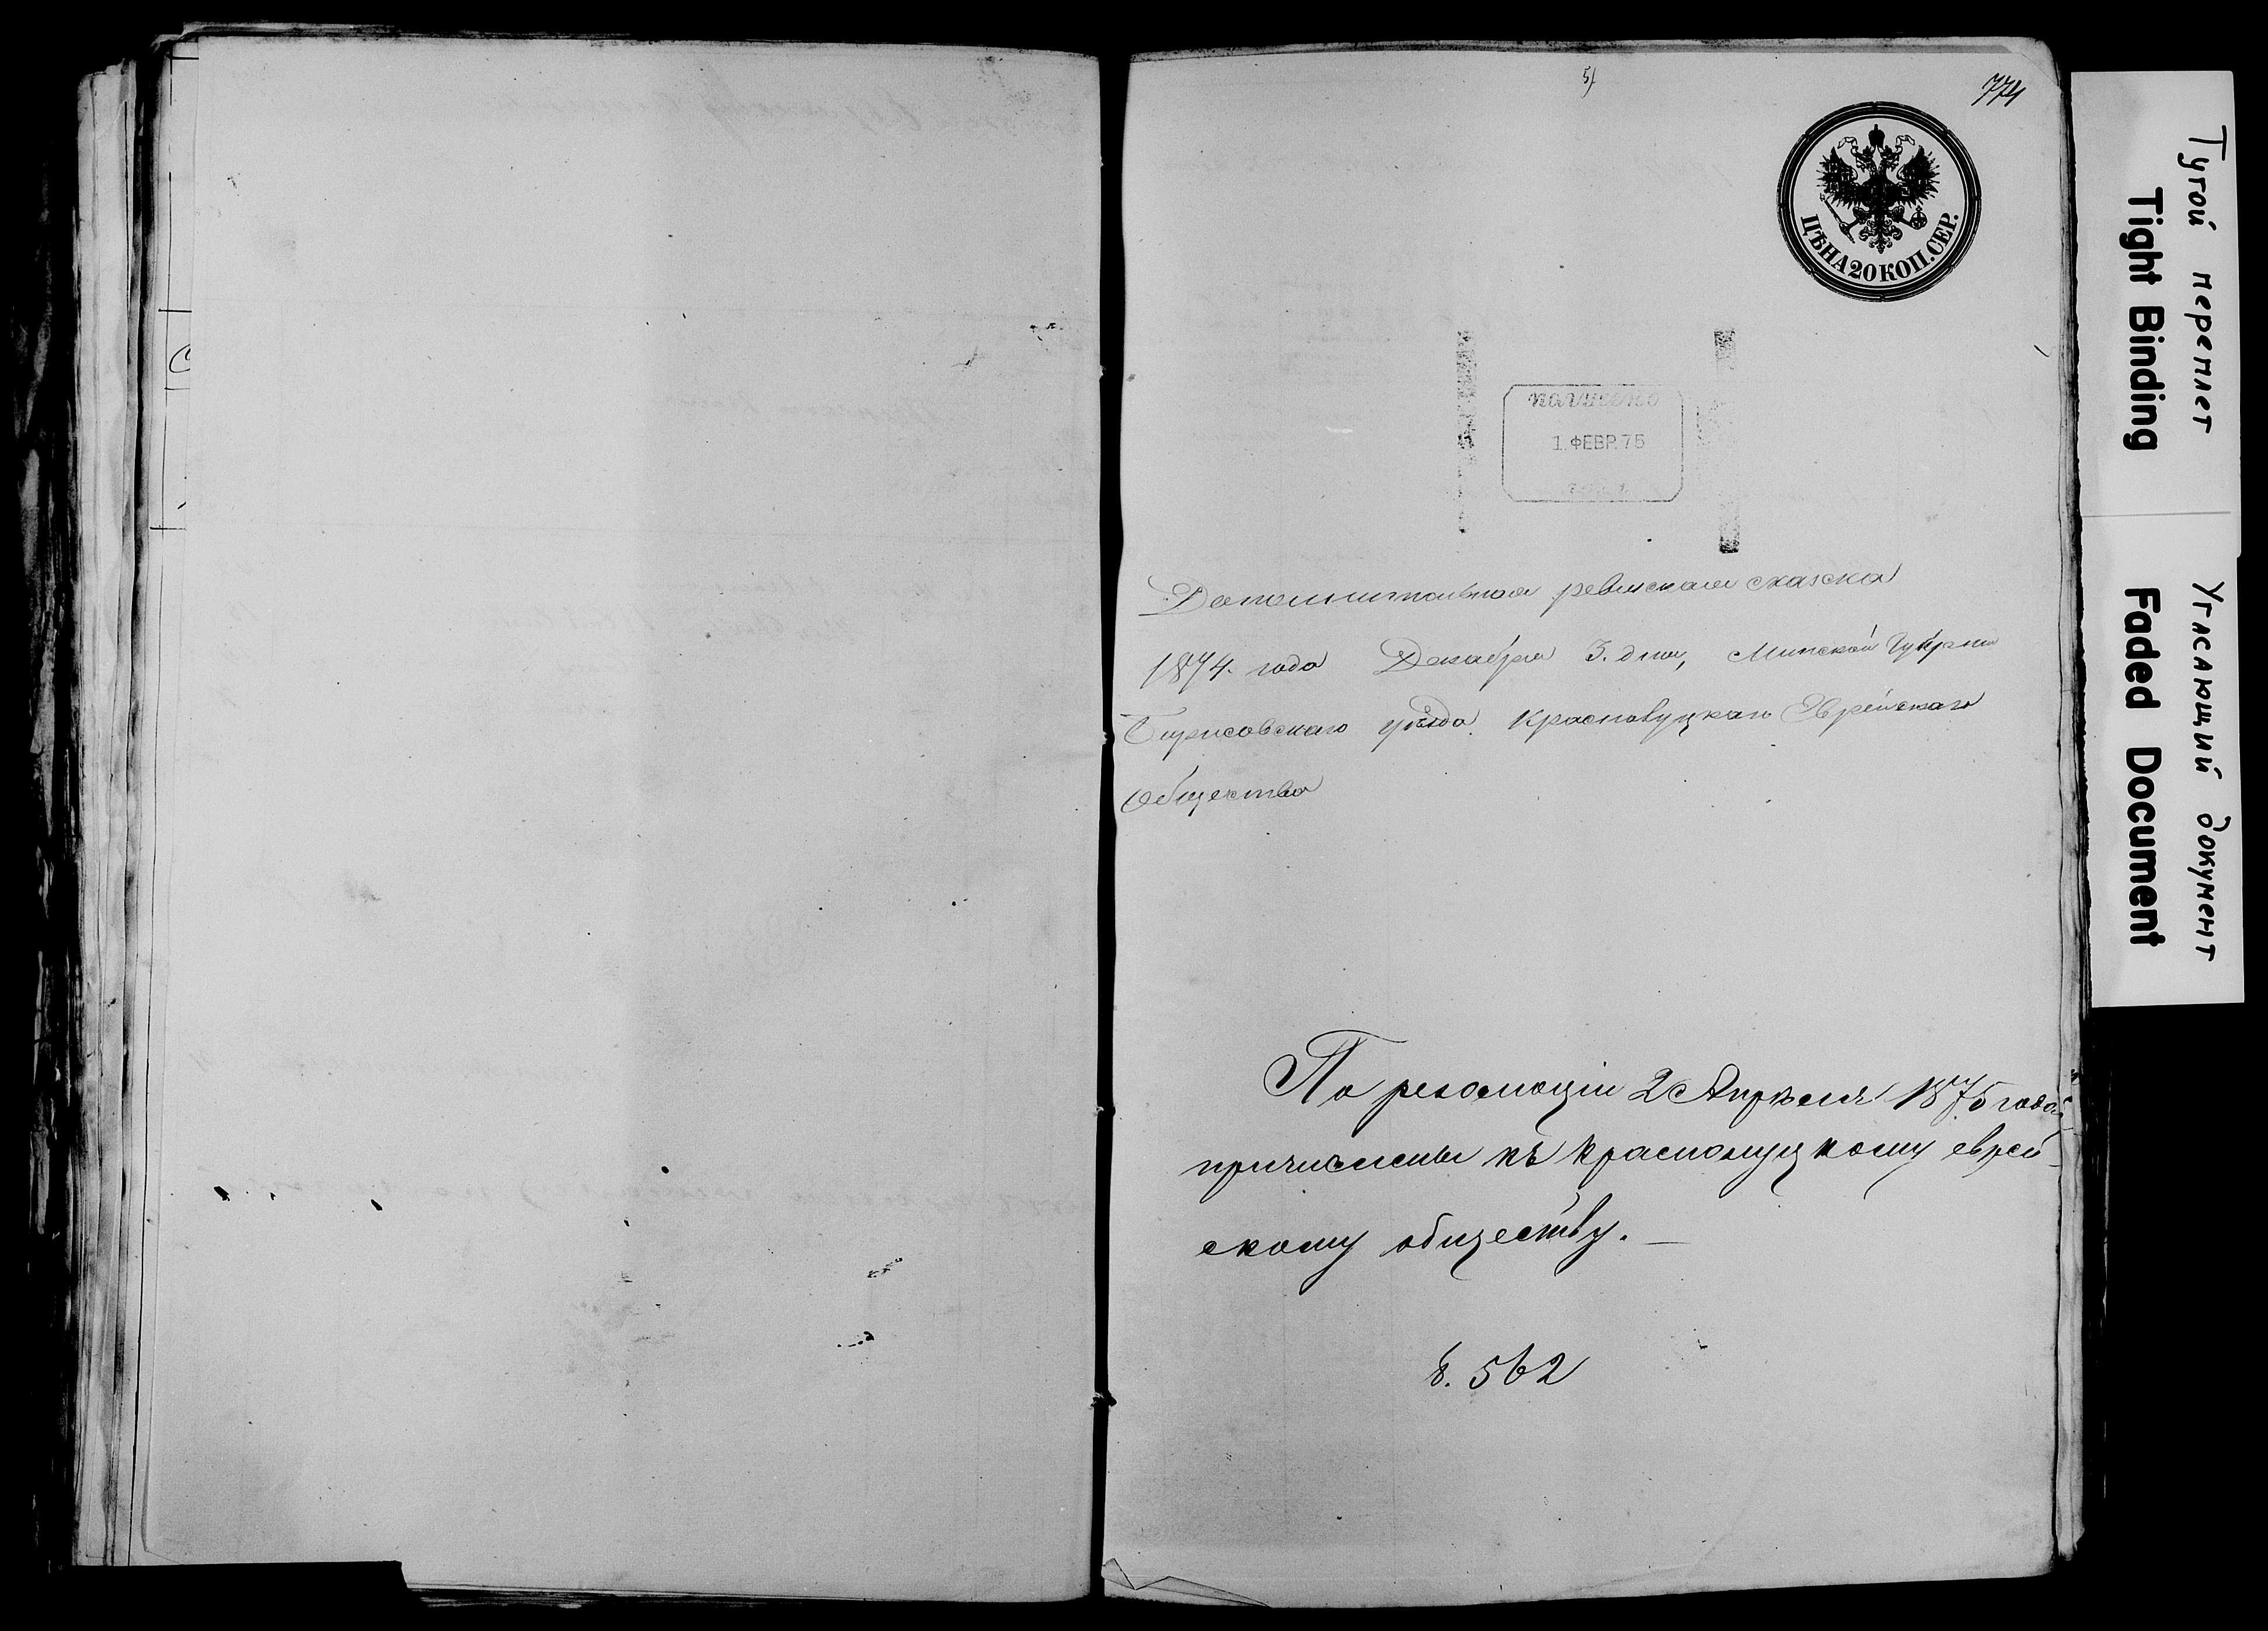 5)
774
ЦѢНА 20 КОП. СЕР.
получено
1 ФЕВР. 75
Дополнительная ревизская сказка
1874. года Декабря 3. дня, Минской Губерни
Борисовскаго уѣзда. Краснолуцкаго Еврейскаго
Общества
По резолюціи 2 Апрѣля 1875 года
причислены къ Краснолуцкому еврей-
скому обществу. —
8. 562
Тугой переплет
Tight Binding
Угасающий документ
Faded Document